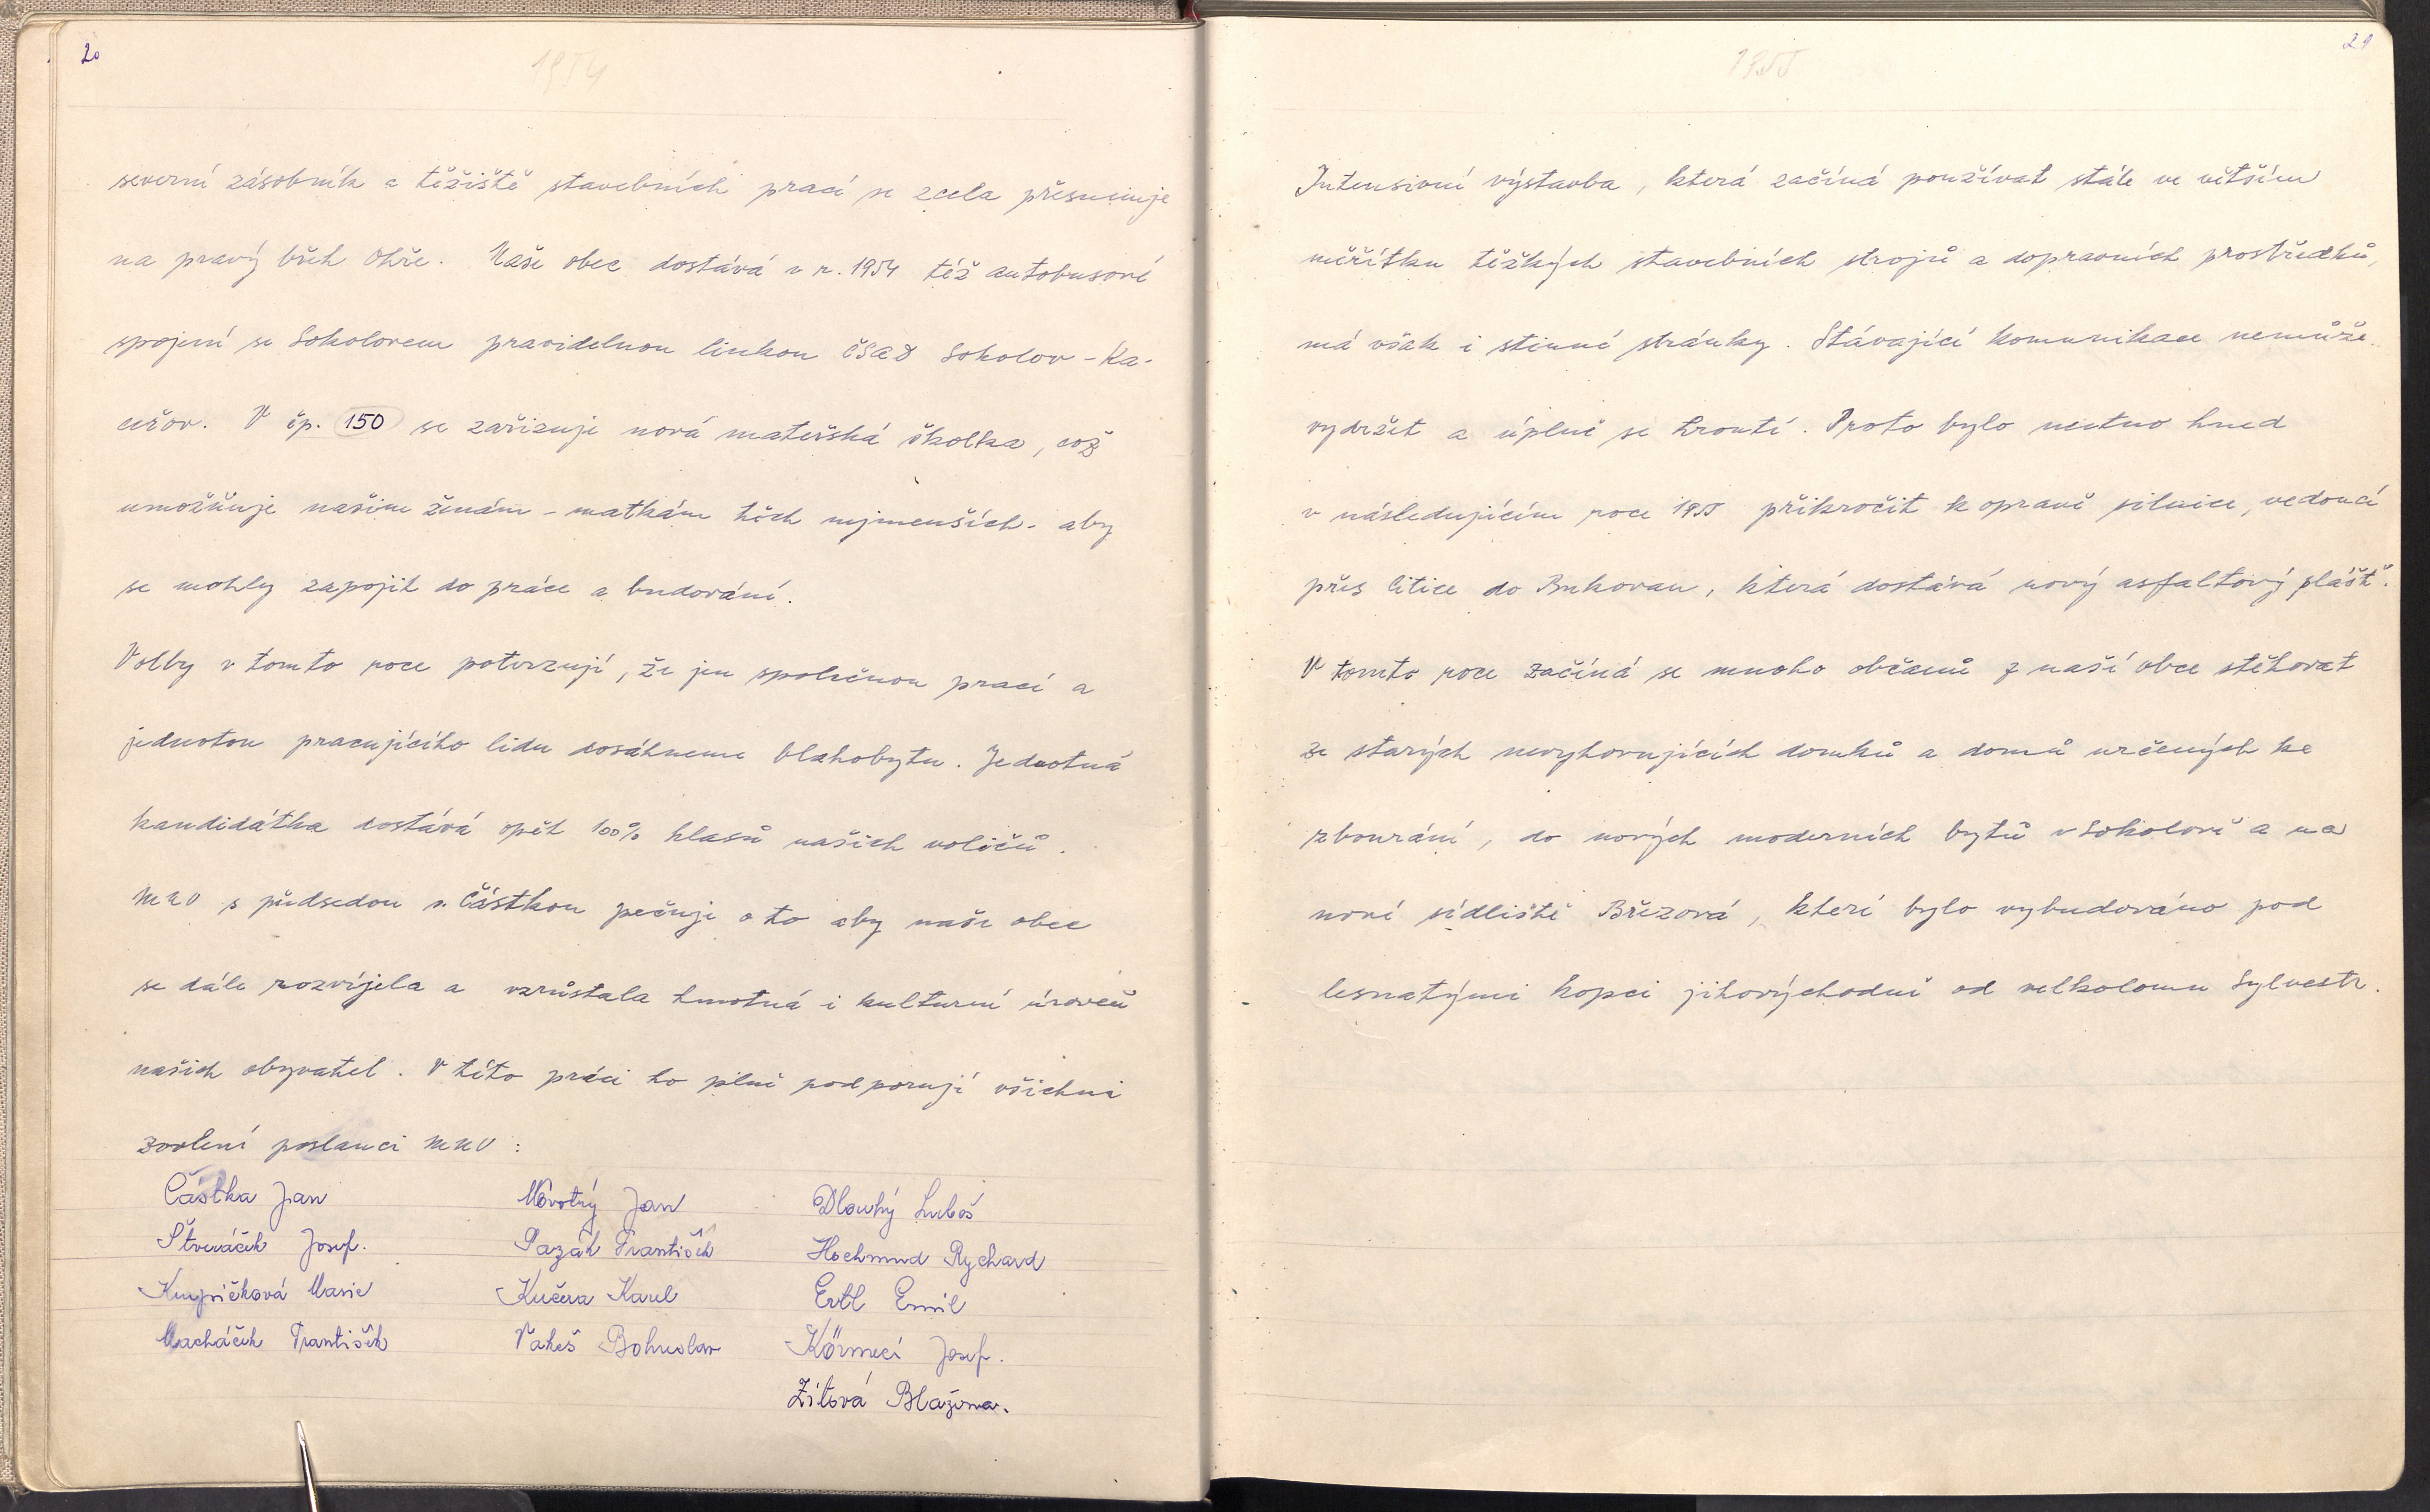 20
1954
severní zásobník a těžiště stavebních prací se zcela přesunuje
na pravý břeh Ohře. Naše obec dostává v r. 1954 též autobusové
spojení se Sokolovem pravidelnou linkou ČSAD Sokolov - Ka-
ceřov. V čp. 150 se zařizuje nová mateřská školka, což
umožňuje našim ženám - matkám těch nejmenších - aby
se mohly zapojit do práce a budování.
Volby v tomto roce potvrzují, že jen společnou prací a
jednotou pracujícího lidu dosáhneme blahobytu. Jednotná
kandidátka dostává opět 100% hlasů našich voličů.
MNV s předsedou s. Částkou pečuje o to aby naše obec
se dále rozvíjela a vzrůstala hmotná i kulturní úroveň
našich obyvatel. V této práci ho plně podporují všichni
zvolení poslanci MNV :
Částka Jan Novotný Jan Dlouhý Luboš
Štveráček Josef. Pazák František Hochmud Rychard
Krupičková Marie Kučera Karel Ertl Emil
Macháček František Vakeš Bohuslav Körmecí Josef.
Zítová Blažena.
21
1955
Intensivní výstavba, která začíná používat stále ve větším
měřítku těžkých stavebních strojů a dopravních prostředků,
má však i stinné stránky. Stávající komunikace nemůže
vydržet a úplně se hroutí. Proto bylo nutno hned
v následujícím roce 1955 přikročit k opravě silnice, vedoucí
přes Citice do Bukovan, která dostává nový asfaltový plášť.
V tomto roce začíná se mnoho občanů z naší obce stěhovat
ze starých nevyhovujících domků a domů určených ke
zbourání, do nových moderních bytů v Sokolově a na
nové sídliště Březová, které bylo vybudováno pod
lesnatými kopci jihovýchodně od velkolomu Sylvestr.